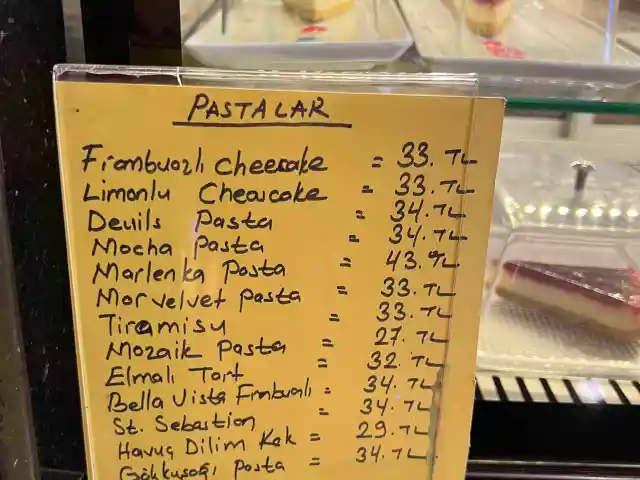 PASTALAR
Frambuazlı Cheesake = 33. TL
Limonlu Cheascake = 33. TL
Devils Pasta = 34. TL
Mocha Pasta = 34. TL
Marlenka Pasta = 43. TL
Morvelvet Pasta = 33. TL
Tiramisu = 33. TL
Mozaik Pasta = 27. TL
Elmalı Tart = 32. TL
Bella Vista Frnbuazlı = 34. TL
St. Sebastion = 34. TL
Havuç Dilim Kek = 29. TL
Gökkuşağı Pasta = 34. TL